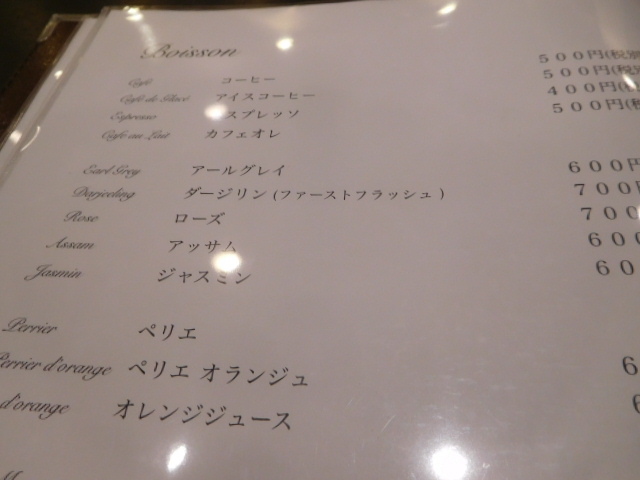 Boisson
Café コーヒー 500円(税別
Café de Glacé アイスコーヒー 500円(税別
Espresso スプレッソ 400円(
Café au Lait カフェオレ 500円(
Earl Grey アールグレイ 600円
Darjeeling ダージリン (ファーストフラッシュ) 700円
Rose ローズ 700
Assam アッサム 600
Jasmin ジャスミン 60
Perrier ペリエ
Perrier d'orange ペリエ オランジュ 6
d'orange オレンジジュース 6